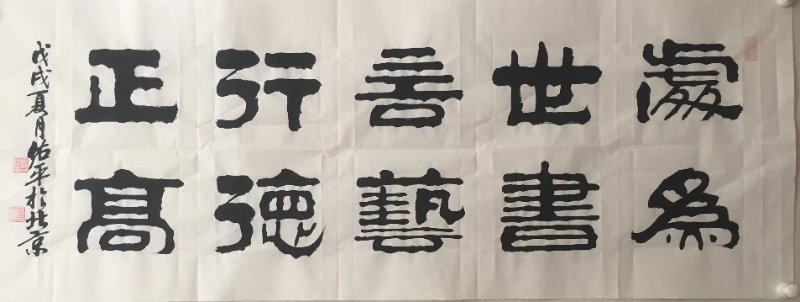 處世言行正
為書藝德高
戊戌夏月佑平於北京